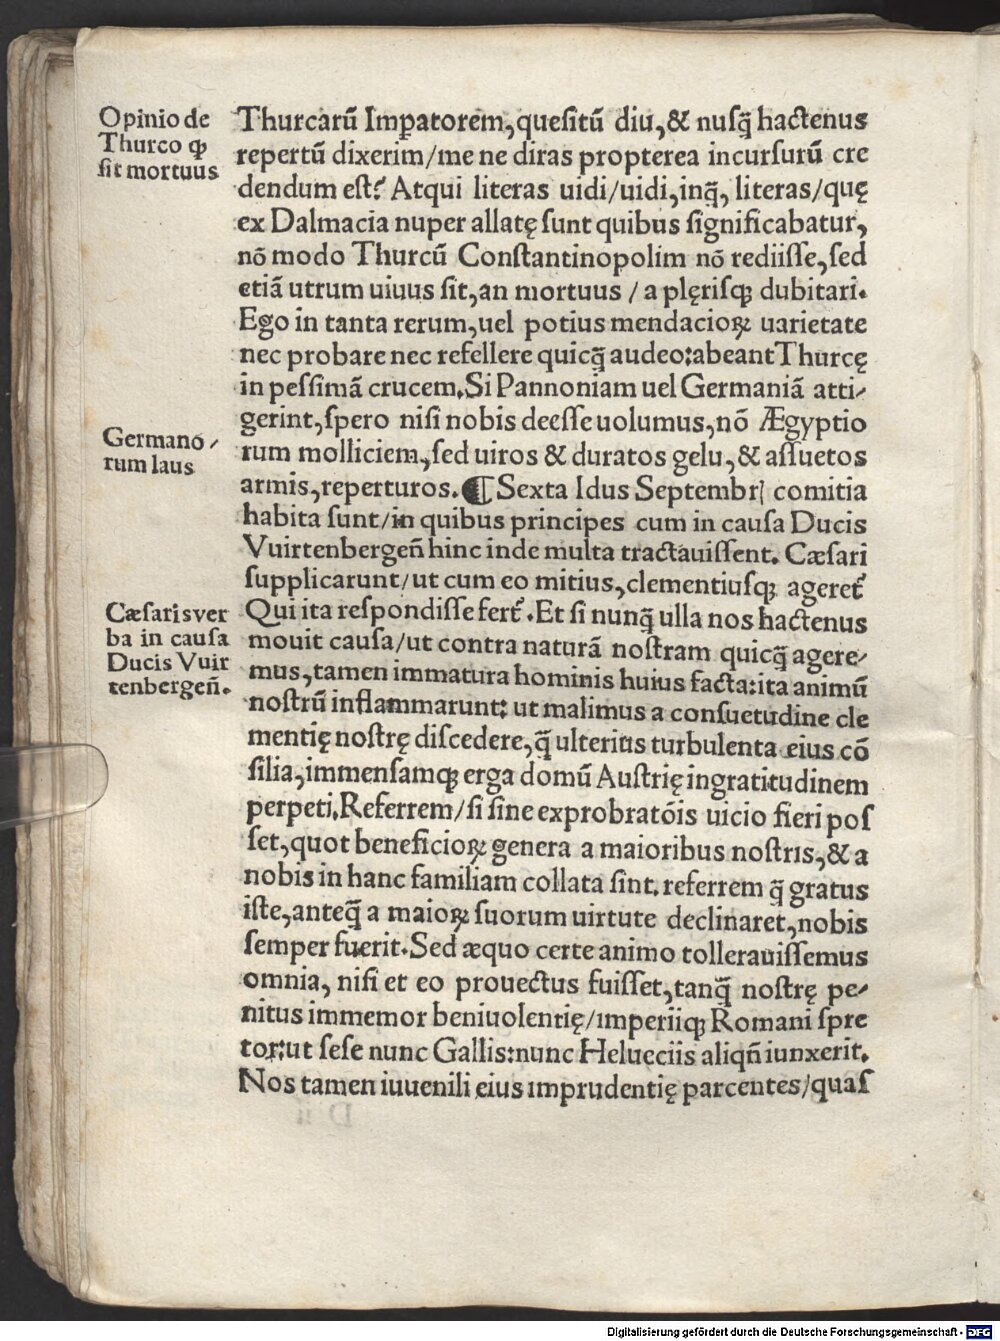 Opinio de
Thurco ꝙ
ſit mortuus
Thurcarū Imꝑatorem, queſitū diu, & nuſq̄ hactenus
repertū dixerim/me ne diras propterea incurſurū cre
dendum eſt? Atqui literas uidi/uidi, inq̄, literas/quę
ex Dalmacia nuper allatę ſunt quibus ſignificabatur,
nō modo Thurcū Conſtantinopolim nō rediiſſe, ſed
etiā utrum uiuus ſit, an mortuus / a plęriſqꝫ dubitari.
Ego in tanta rerum, uel potius mendacioꝝ uarietate
nec probare nec refellere quicq̄ audeo: abeant Thurcę
in peſſimā crucem. Si Pannoniam uel Germaniā atti⸗
gerint, ſpero niſi nobis deeſſe uolumus, nō Ægyptio
Germano⸗
rum laus
rum molliciem, ſed uiros & duratos gelu, & aſſuetos
armis, reperturos. ¶ Sexta Idus Septembrꝭ comitia
habita ſunt/in quibus principes cum in cauſa Ducis
Vuirtenbergen̄ hinc inde multa tractauiſſent. Cæſari
ſupplicarunt/ut cum eo mitius, clementiuſqꝫ ageret᷑
Cæſaris ver
ba in cauſa
Ducis Vuir
tenbergen̄.
Qui ita reſpondiſſe fert᷑. Et ſi nunq̄ ulla nos hactenus
mouit cauſa/ut contra naturā noſtram quicq̄ agere⸗
mus, tamen immatura hominis huius facta: ita animū
noſtrū inflammarunt: ut malimus a conſuetudine cle
mentię noſtrę diſcedere, q̄ ulterius turbulenta eius cō
ſilia, immenſamqꝫ erga domū Auſtrię ingratitudinem
perpeti. Referrem/ſi ſine exprobratōis uicio fieri poſ
ſet, quot beneficioꝝ genera a maioribus noſtris, & a
nobis in hanc familiam collata ſint. referrem q̄ gratus
iſte, anteq̄ a maioꝝ ſuorum uirtute declinaret, nobis
ſemper fuerit. Sed æquo certe animo tollerauiſſemus
omnia, niſi et eo prouectus fuiſſet, tanq̄ noſtrę pe⸗
nitus immemor beniuolentię/imperiiqꝫ Romani ſpre
tor: ut ſeſe nunc Gallis: nunc Helueciis aliqn̄ iunxerit.
Nos tamen iuuenili eius imprudentię parcentes/quaſ
Digitalisierung gefördert durch die Deutsche Forschungsgemeinschaft - DFG